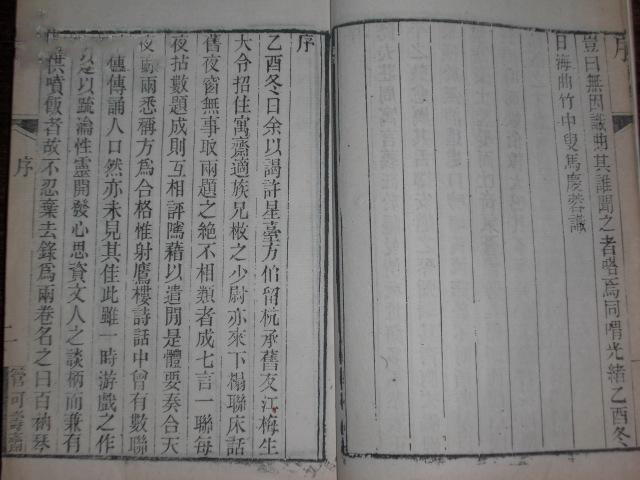 序
豈曰無因識曲其誰聞之者略焉同喟光緒乙酉冬
日海曲竹中叟馬慶蓉識
序
乙酉冬日余以謁許星臺方伯留杭承舊友江梅生
大令招住寓齋適族兄枚之少尉亦來下榻聯床話
舊夜窗無事取兩題之絕不相類者成七言一聯每
夜拈數題成則互相評隲藉以遣閒是體要奏合天
夜兩悉稱方為合格惟射鷹樓詩話中曾有數聯
傳誦人口然亦未見其佳此雖一時游戲之作
以疏瀹性靈開發心思資文人之談柄而兼有
供噴飯者故不忍棄去錄為兩卷名之曰百衲琴
序
二
管可壽齋